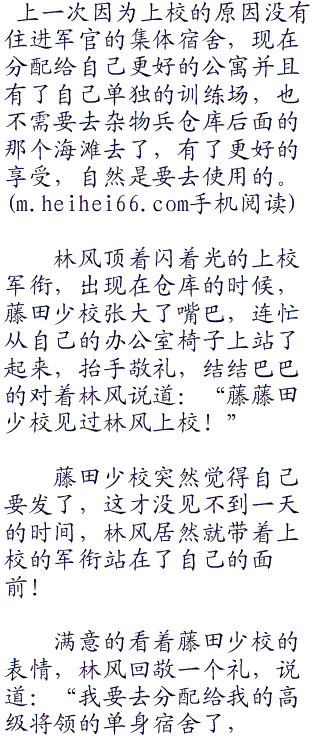 上一次因为上校的原因没有
住进军官的集体宿舍，现在
分配给自己更好的公寓并且
有了自己单独的训练场，也
不需要去杂物兵仓库后面的
那个海滩去了，有了更好的
享受，自然是要去使用的。
(m.heihei66.com手机阅读)
林风顶着闪着光的上校
军衔，出现在仓库的时候，
藤田少校张大了嘴巴，连忙
从自己的办公室椅子上站了
起来，抬手敬礼，结结巴巴
的对着林风说道：“藤藤田
少校见过林风上校！”
藤田少校突然觉得自己
要发了，这才没见不到一天
的时间，林风居然就带着上
校的军衔站在了自己的面
前！
满意的看着藤田少校的
表情，林风回敬一个礼，说
道：“我要去分配给我的高
级将领的单身宿舍了，